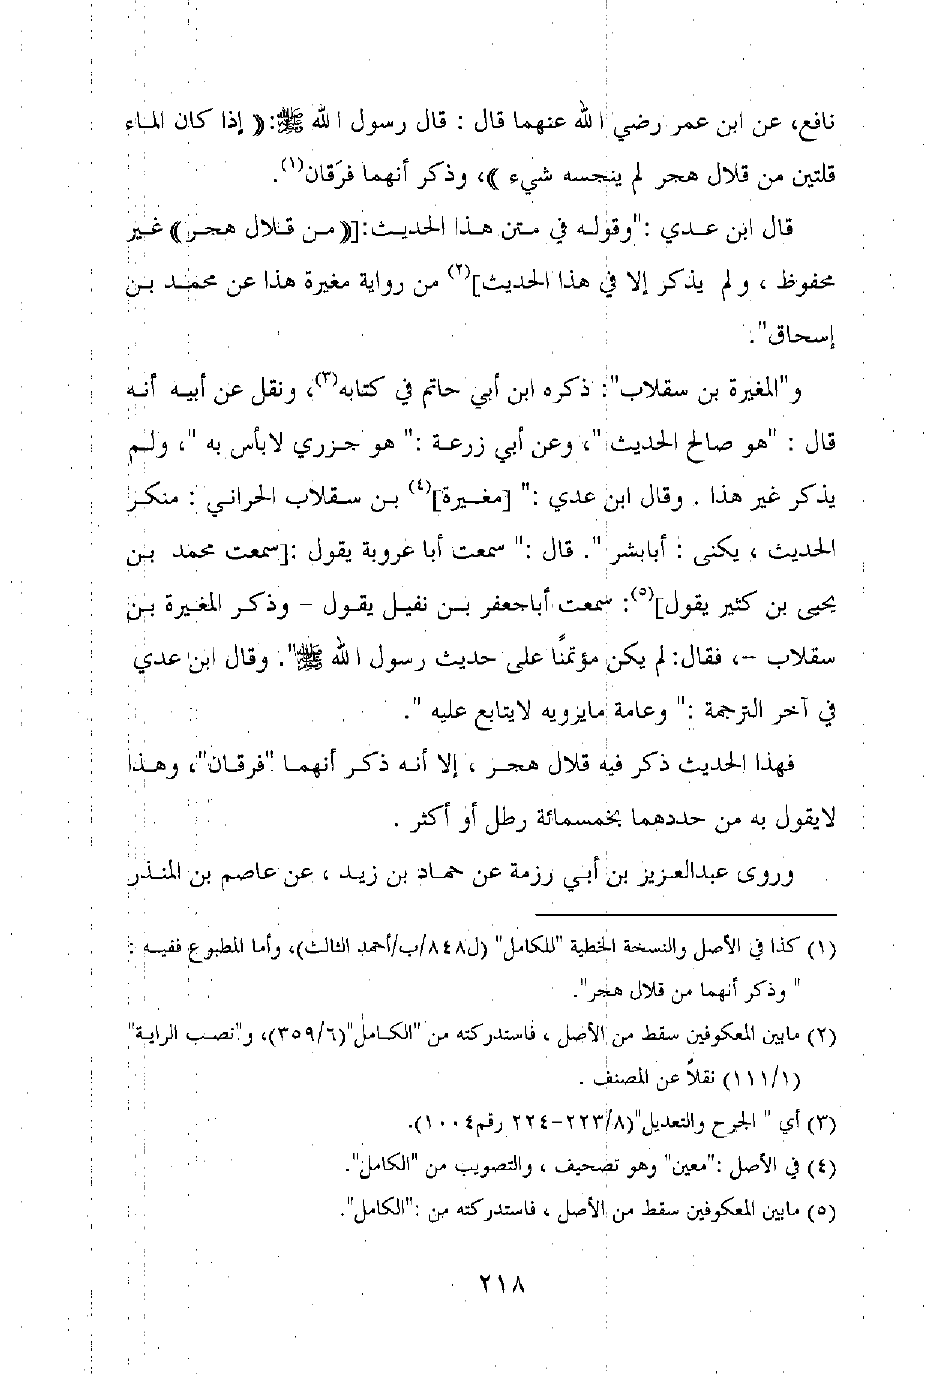 نافع، عن ابن عمر رضي الله عنهما قال : قال رسول الله ﷺ:﴿ إذا كان الماء
قلتين من قلال هجر لم ينجسه شيء ﴾، وذكر أنهما فرَقان(١).
قال ابن عدي :"وقوله في متن هذا الحديث:[﴿من قلال هجر﴾ غير
محفوظ ، ولم يذكر إلا في هذا الحديث](٢) من رواية مغيرة هذا عن محمد بن
إسحاق".
و"المغيرة بن سقلاب": ذكره ابن أبي حاتم في كتابه(٣)، ونقل عن أبيه أنه
قال : "هو صالح الحديث "، وعن أبي زرعة :" هو جزري لابأس به "، ولم
يذكر غير هذا . وقال ابن عدي :" [مغيرة](٤) بن سقلاب الحراني : منكر
الحديث ، يكنى : أبابشر ". قال :" سمعت أبا عروبة يقول :[سمعت محمد بن
يحيى بن كثير يقول](٥): سمعت أباجعفر بن نفيل يقول - وذكر المغيرة بن
سقلاب -، فقال: لم يكن مؤتمنًا على حديث رسول الله ﷺ". وقال ابن عدي
في آخر الترجمة :" وعامة مايرويه لايتابع عليه ".
فهذا الحديث ذكر فيه قلال هجر ، إلا أنه ذكر أنهما "فرقان"، وهذا
لايقول به من حددهما بخمسمائة رطل أو أكثر .
وروى عبدالعزيز بن أبي رزمة عن حماد بن زيد ، عن عاصم بن المنذر
(١) كذا في الأصل والنسخة الخطية "للكامل" (ل٨٤٨/ب/أحمد الثالث)، وأما المطبوع ففيه :
" وذكر أنهما من قلال هجر".
(٢) مابين المعكوفين سقط من الأصل ، فاستدركته من "الكامل"(٣٥٩/٦)، و"نصب الراية"
(١١١/١) نقلاً عن المصنف .
(٣) أي " الجرح والتعديل"(٢٢٣/٨-٢٢٤ رقم١٠٠٤).
(٤) في الأصل :"معين" وهو تصحيف ، والتصويب من "الكامل".
(٥) مابين المعكوفين سقط من الأصل ، فاستدركته من :"الكامل".
٢١٨